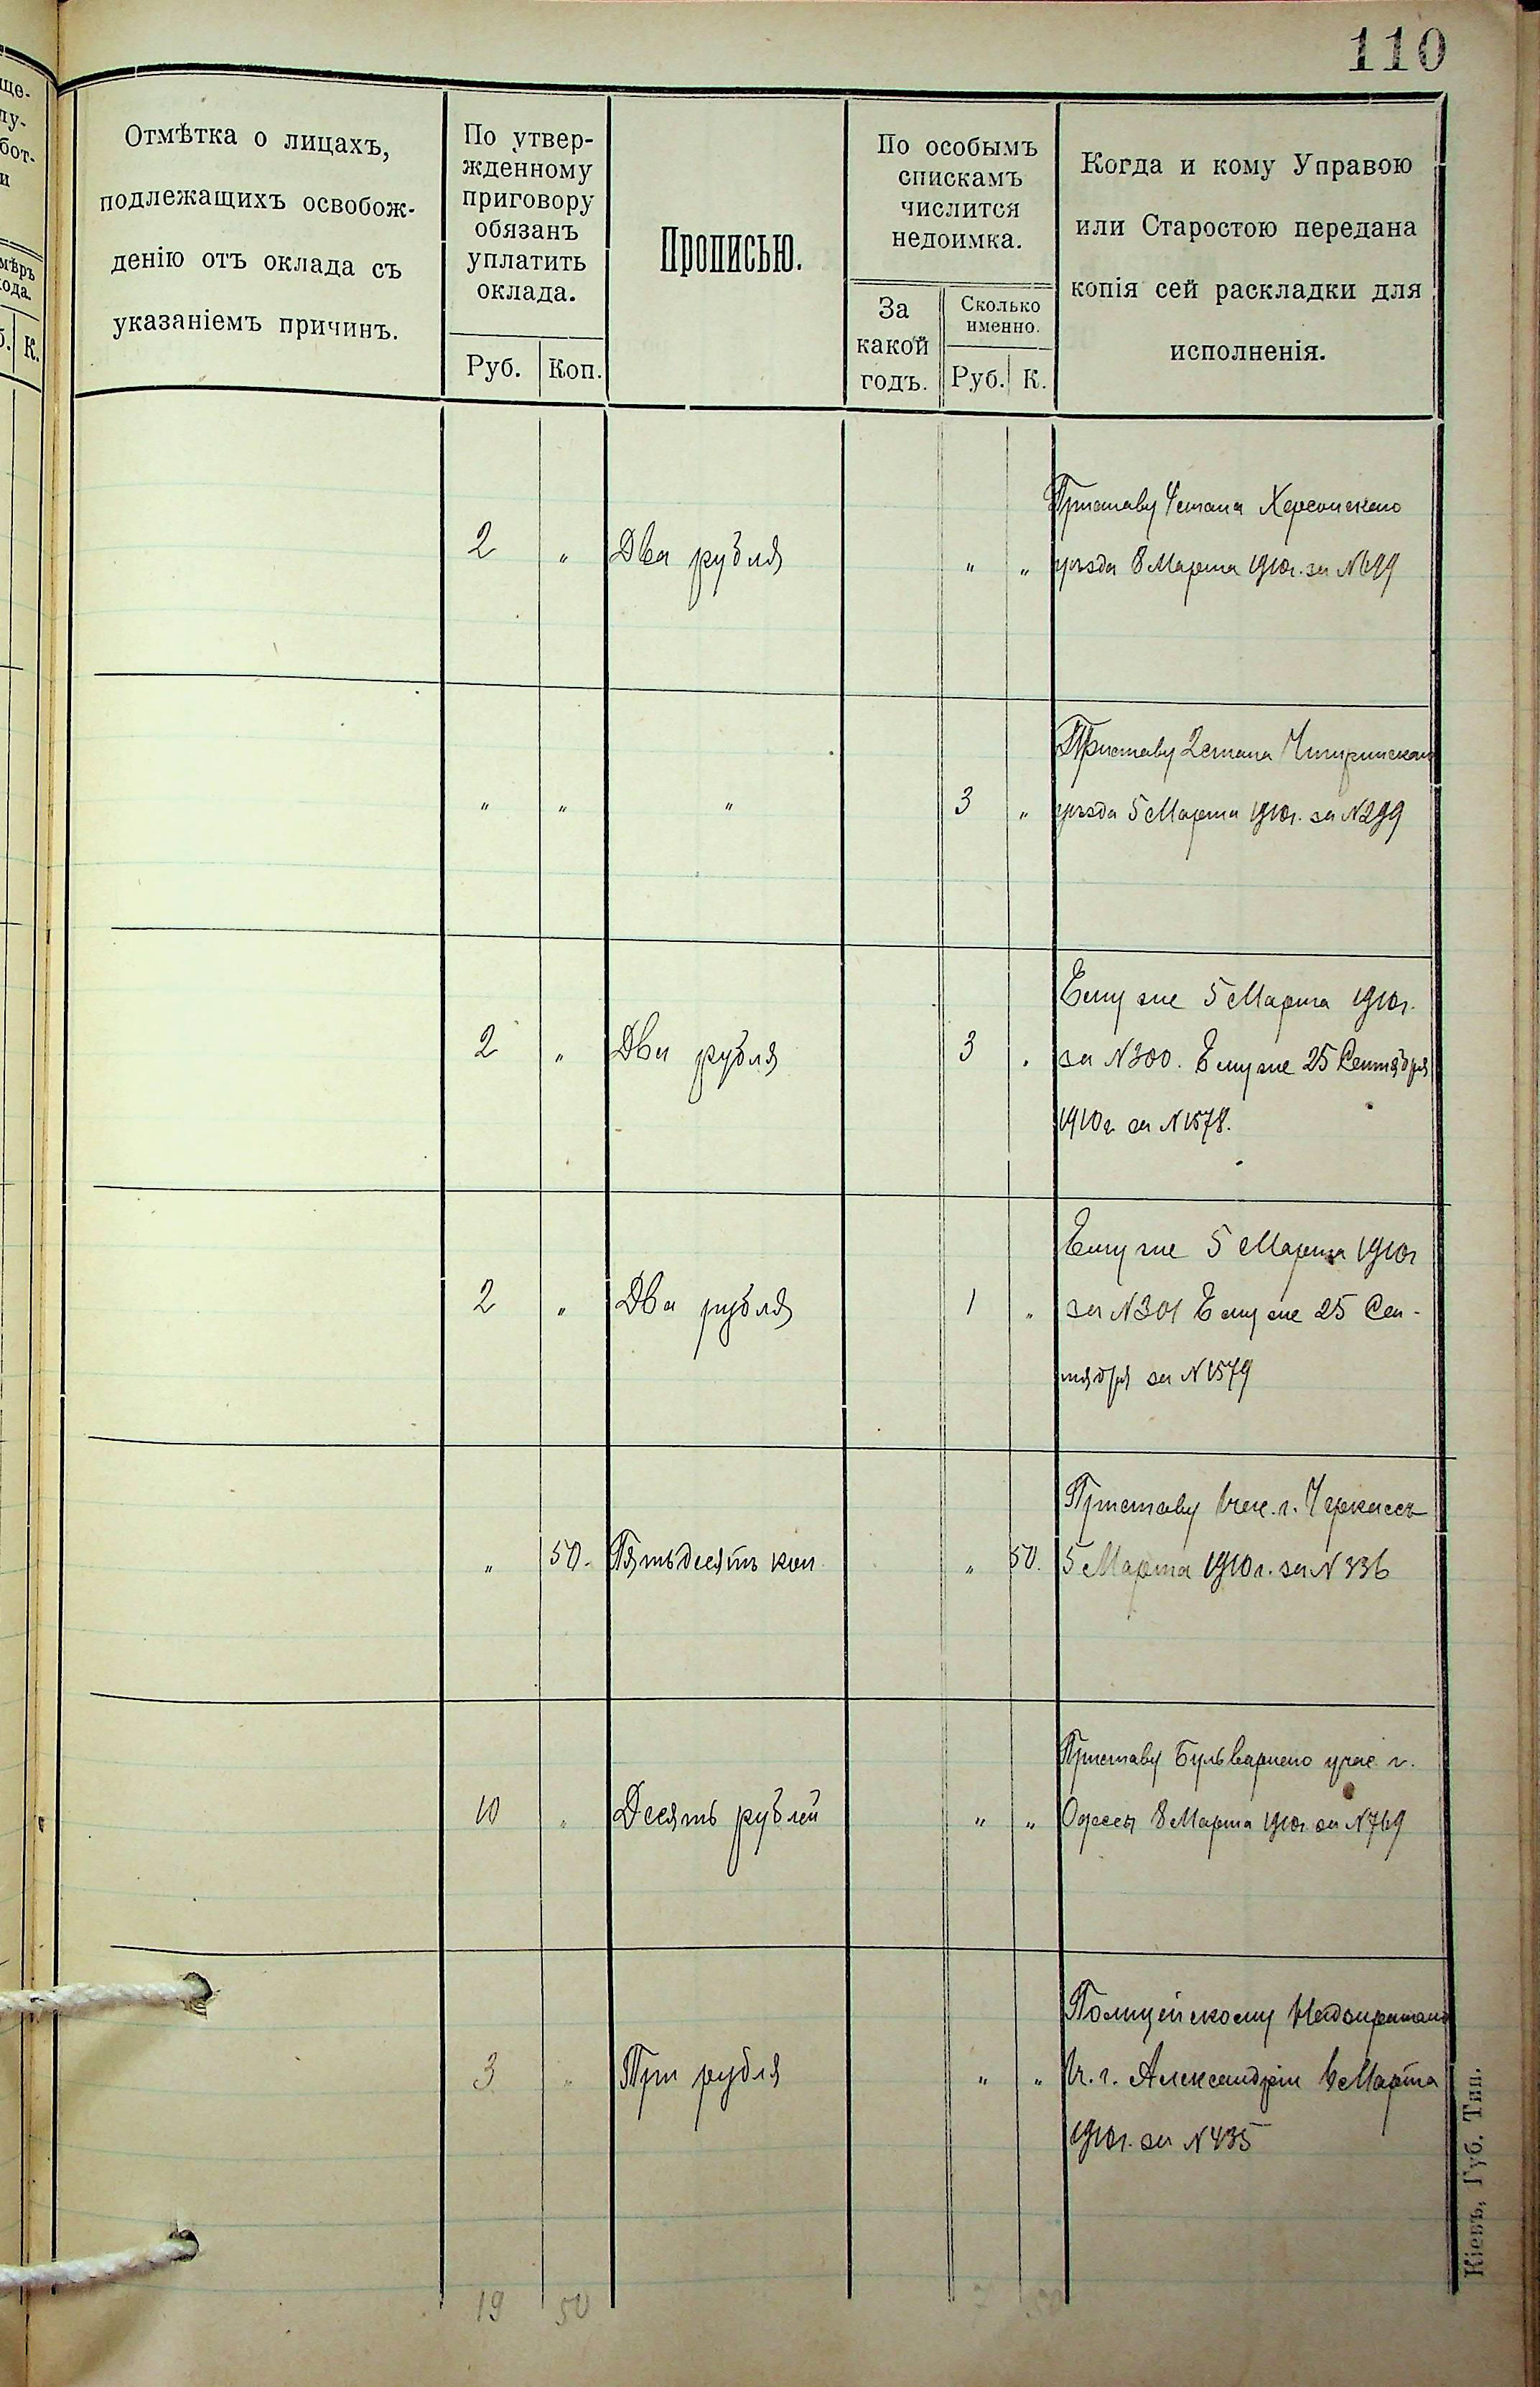 110
ще-
лу-
бот-
и
мѣръ
хода.
Б. К.
Отмѣтка о лицахъ,
подлежащихъ освобож-
денію отъ оклада съ
указаніемъ причинъ.
По утвер-
жденному
приговору
обязанъ
уплатить
оклада.
Руб. Коп.
Прописью.
По особымъ
спискамъ
числится
недоимка.
За
какой
годъ.
Сколько
именно.
Руб. К.
Когда и кому Управою
или Старостою передана
копія сей раскладки для
исполненія.
Приставу 4 стана Херсонскаго
2 " Два рубля " " уѣзда 8 Марта 1910г. за №699
Приставу 2 стана Чигиринскаго
" " " 3 " уѣзда 5 Марта 1910г. за №299
Ему же 5 Марта 1910г.
2 " Два рубля 3 " за №300. Ему же 25 Сентября
1910г за №1578.
Ему же 5 Марта 1910г
2 " Два рубля 1 " за №301 Ему же 25 Сен-
тября за №1579
Приставу г. Черкассъ
" 50. Пятьдесятъ коп " 50. 5 Марта 1910г. за №336
Приставу Бульварнаго учас. г.
10 " Десять рублей " " Одессы 8 Марта 1910г. за №769
Полицейскому Надзирателю
3 " Три рубля " " г. Александріи Марта
1910г. за №435
19 50 7 50
Кіевъ, Губ. Тип.